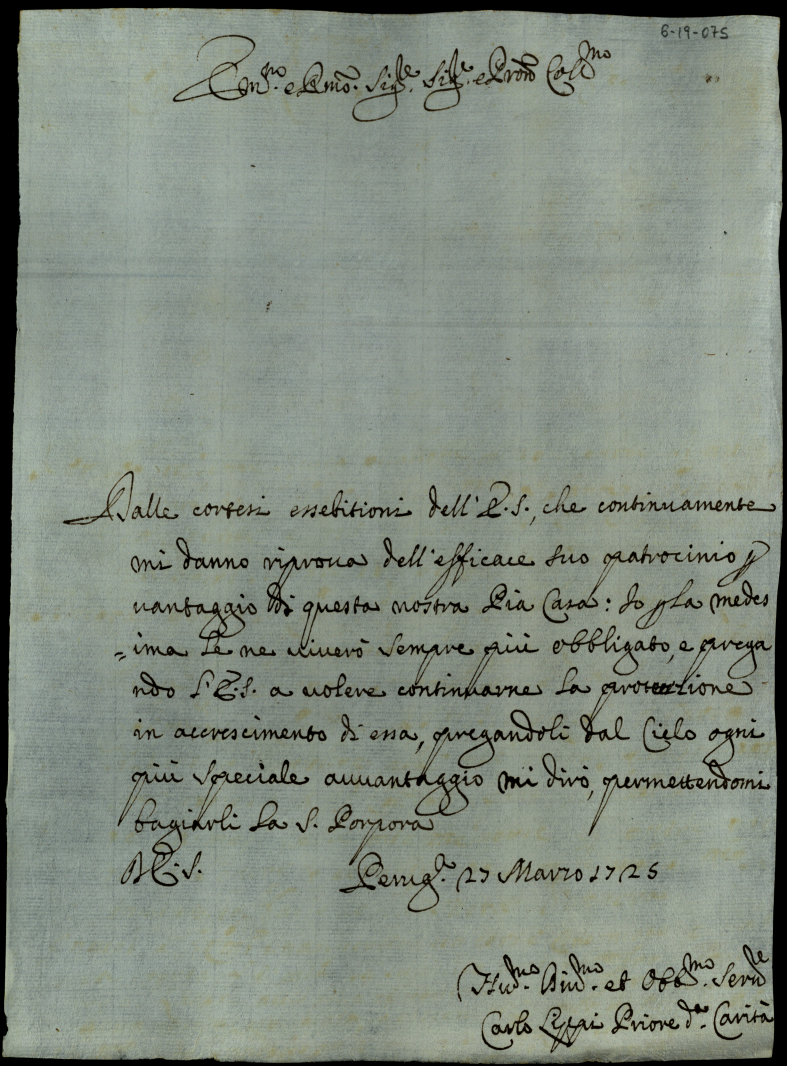 6-19-075
Em.mo e Rmo. Sig.re Sig.re e Pron Coll.mo
Dalle cortesi essebitioni dell'E.S., che continuamente
mi danno riprova dell'efficace suo patrocinio p
vantaggio di questa nostra Pia Casa: Io p la medes
=ima Le ne viverò sempre più obbligato, e prega
ndo l'E.S. a volere continuarne la protezione
in accrescimento di essa, pregandoli dal Cielo ogni
più speciale avvantaggio mi dirò, permettendomi
bagiarli la S. Porpora
D E. S. Perug.a 27 Marzo 1725
Hu.mo Div.mo et Obb.mo Serv.re
Carlo Lippi Priore d.a Carità